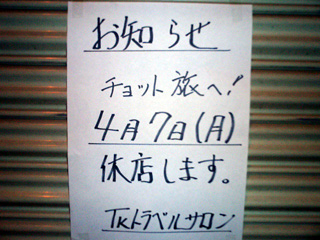 お知らせ
チョット旅へ!
4月7日(月)
休店します。
TKトラベルサロン